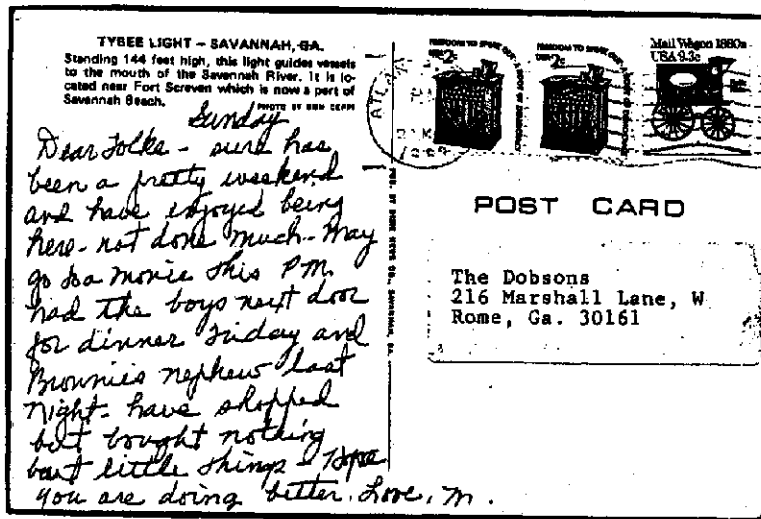 TYBEE LIGHT — SAVANNAH, GA.
Standing 144 feet high, this light guides vessels
to the mouth of the Savannah River. It is lo-
cated near Fort Screven which is now a part of
Savannah Beach.
PHOTO BY
Sunday
Dear Folks - sure has
been a pretty weekend
and have enjoyed being
here - not done much - May
go to a movie this P.M.
had the boys next door
for dinner Friday and
Brownies nephew last
night - have shopped
but bought nothing
but little things - Hope
you are doing better. Love, M.
FREEDOM TO SPEAK OUT
USA 2c
FREEDOM TO SPEAK OUT
USA 2c
Mail Wagon 1880s
USA 9.3c
POST CARD
The Dobsons
216 Marshall Lane, W
Rome, Ga. 30161